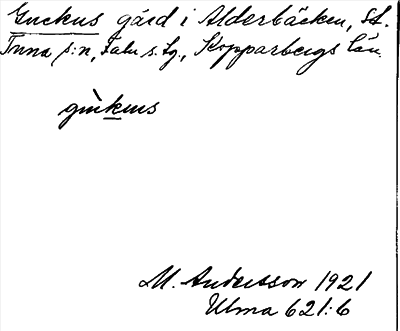 Guckus gård i Alderbäcken, St.
Tuna s:n, Falu s. fg., Kopparbergs län.
gùkus
M. Andersson 1921
Ulma 621:6